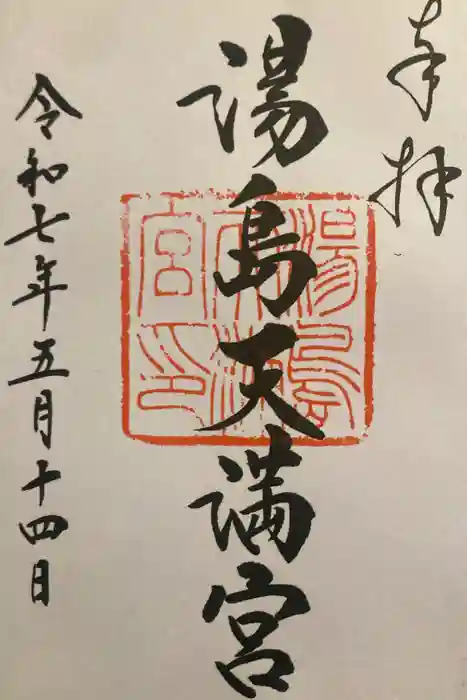 奉拝
湯島天満宮
湯島
天満
宮印
令和七年五月十四日